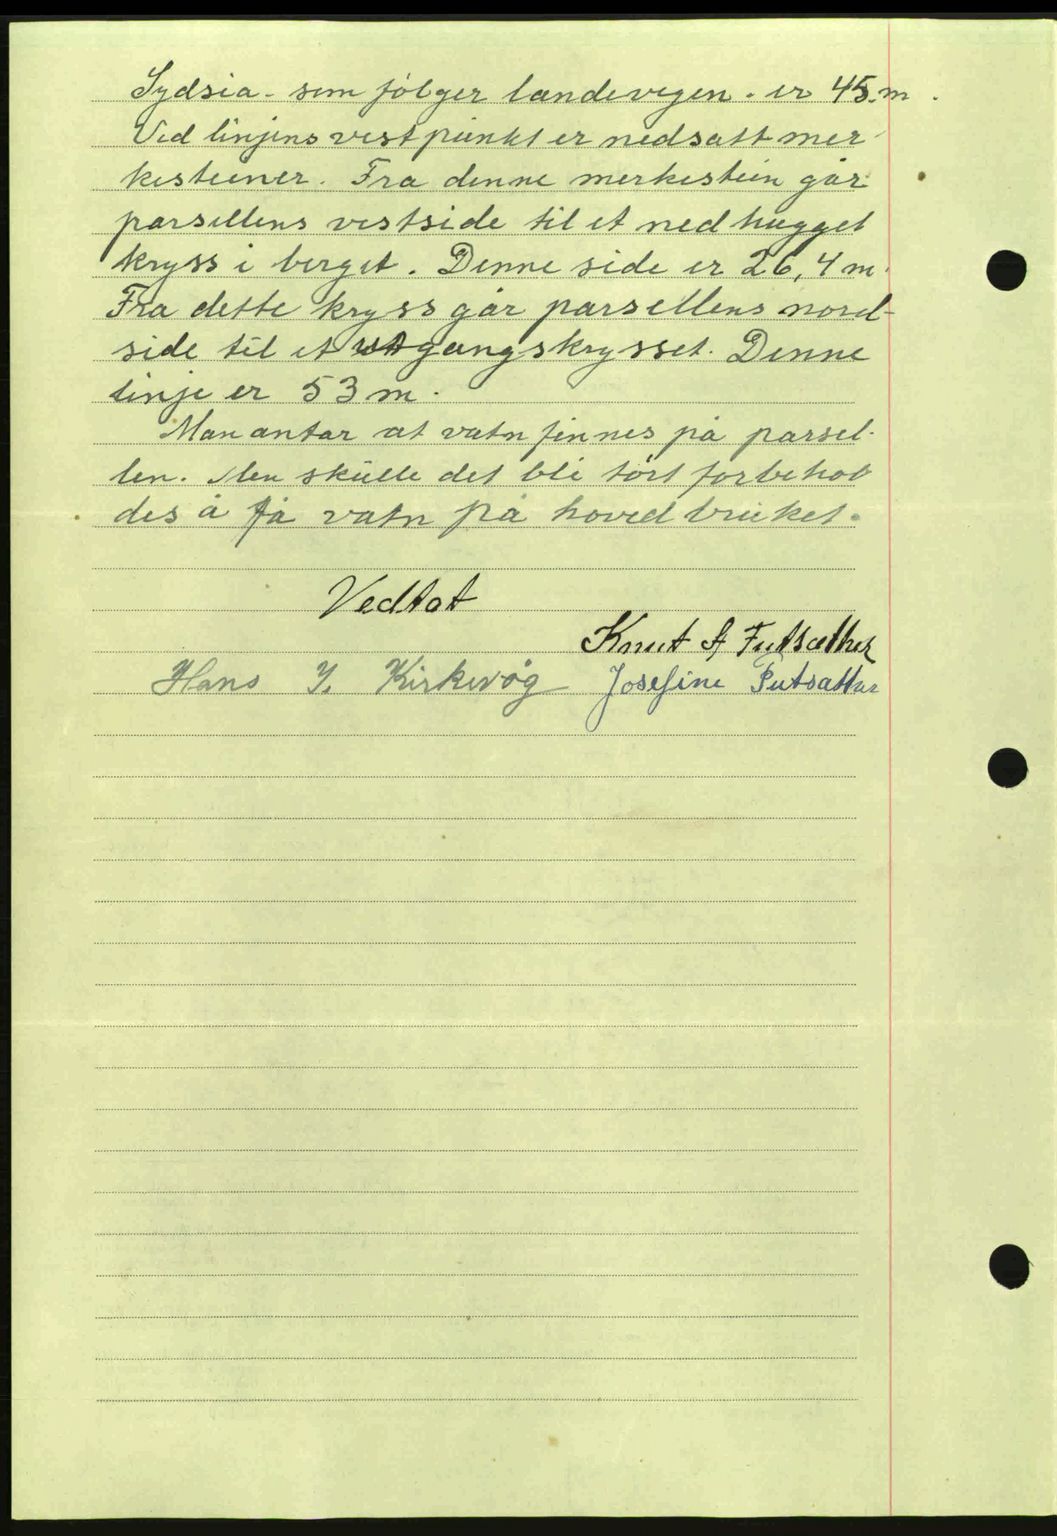 Sydsia - som følger landevegen - er 45 m.
Ved linjens vestpunkt er nedsatt mer-
kesteiner. Fra denne merkestein går
parsellens vestside til et nedhugget
kryss i berget. Denne side er 26,4 m.
Fra dette kryss går parsellens nord-
side til et utgangskrysset. Denne
linje er 53 m.
Man antar at vatn finnes på parsel-
len. Men skulle det bli tørt forbehol
des å få vatn på hovedbruket.
Vedtat
Knut A Futsæther
Hans J. Kirkevåg Josefine Futsæther